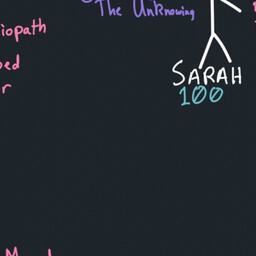 The Unknowing
iopath
SARAH
100